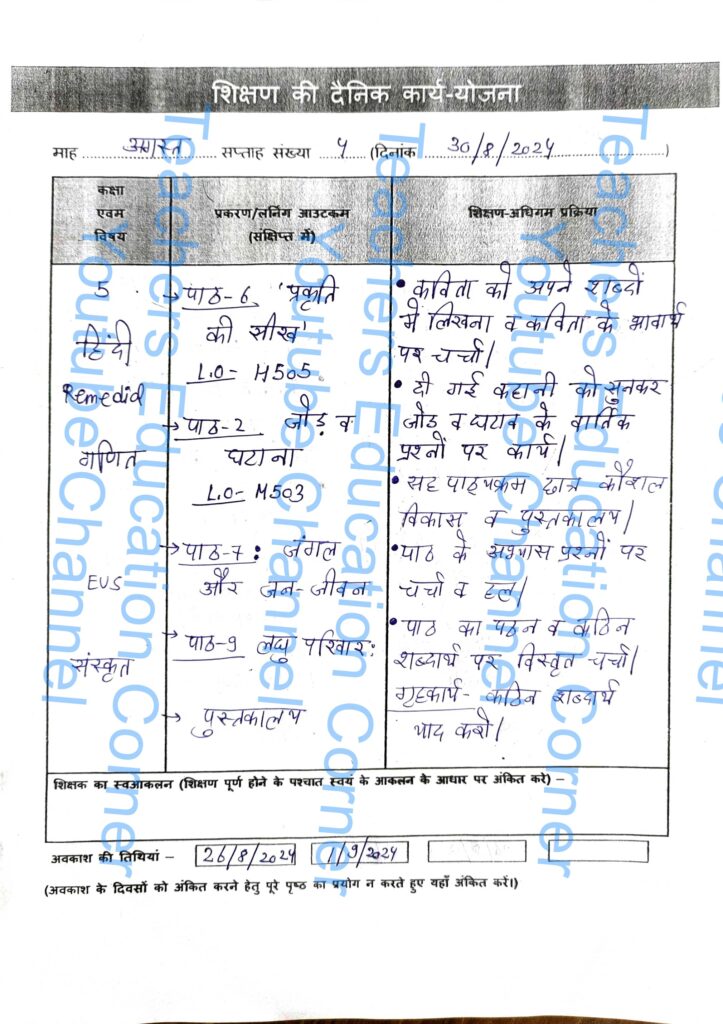 शिक्षण की दैनिक कार्य-योजना
माह अगस्त सप्ताह संख्या 5 (दिनांक 30/8/2024)
कक्षा
एवम
विषय
प्रकरण/लर्निंग आउटकम
(संक्षिप्त में)
शिक्षण-अधिगम प्रक्रिया
5
हिंदी
Remedial
गणित
EVS
संस्कृत
→ पाठ-6 'प्रकृति
की सीख'
L.O- H505
→ पाठ-2 जोड़ व
घटाना
L.O- M503
→ पाठ-7: जंगल
और जन-जीवन
→ पाठ-9 लघु परिवार:
→ पुस्तकालय
• कविता को अपने शब्दों
में लिखना व कविता के भावार्थ
पर चर्चा|
• दी गई कहानी को सुनकर
जोड व घटाव के वार्तिक
प्रश्नों पर कार्य|
• सह पाठ्यक्रम छात्र कौशल
विकास व पुस्तकालय|
• पाठ के अभ्यास प्रश्नों पर
चर्चा व हल|
• पाठ का पठन व कठिन
शब्दार्थ पर विस्तृत चर्चा|
गृहकार्य- कठिन शब्दार्थ
याद करो|
शिक्षक का स्वआकलन (शिक्षण पूर्ण होने के पश्चात स्वयं के आकलन के आधार पर अंकित करे) –
अवकाश की तिथियां – 26/8/2024 1/9/2024
(अवकाश के दिवसों को अंकित करने हेतु पूरे पृष्ठ का प्रयोग न करते हुए यहाँ अंकित करें।)
Teachers Education Corner
Youtube Channel
Teachers Education Corner
Youtube Channel
Teachers Education Corner
Youtube Channel